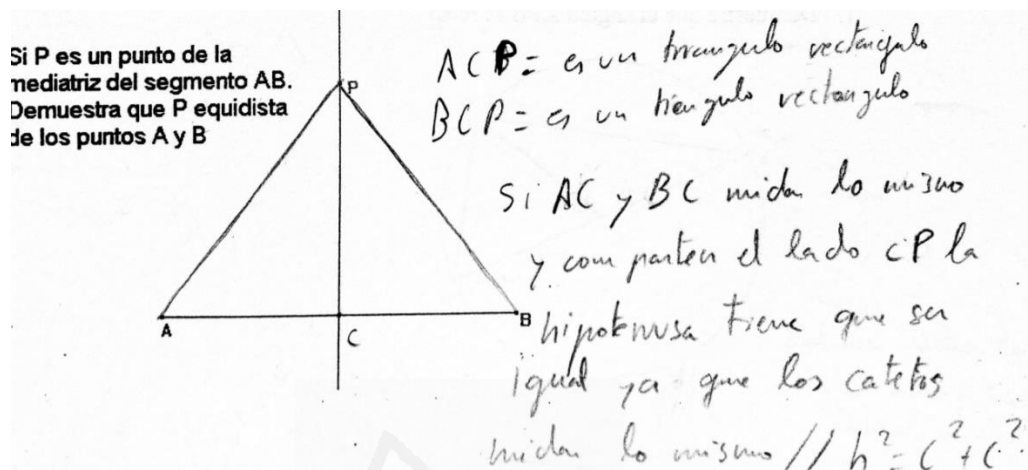 Si P es un punto de la
mediatriz del segmento AB.
Demuestra que P equidista
de los puntos A y B
P
A
C
B
ACP = es un triangulo rectangulo
BCP = es un triangulo rectangulo
Si AC y BC miden lo mismo
y comparten el lado CP la
hipotenusa tiene que ser
igual ya que los catetos
miden lo mismo // h² = c² + c²